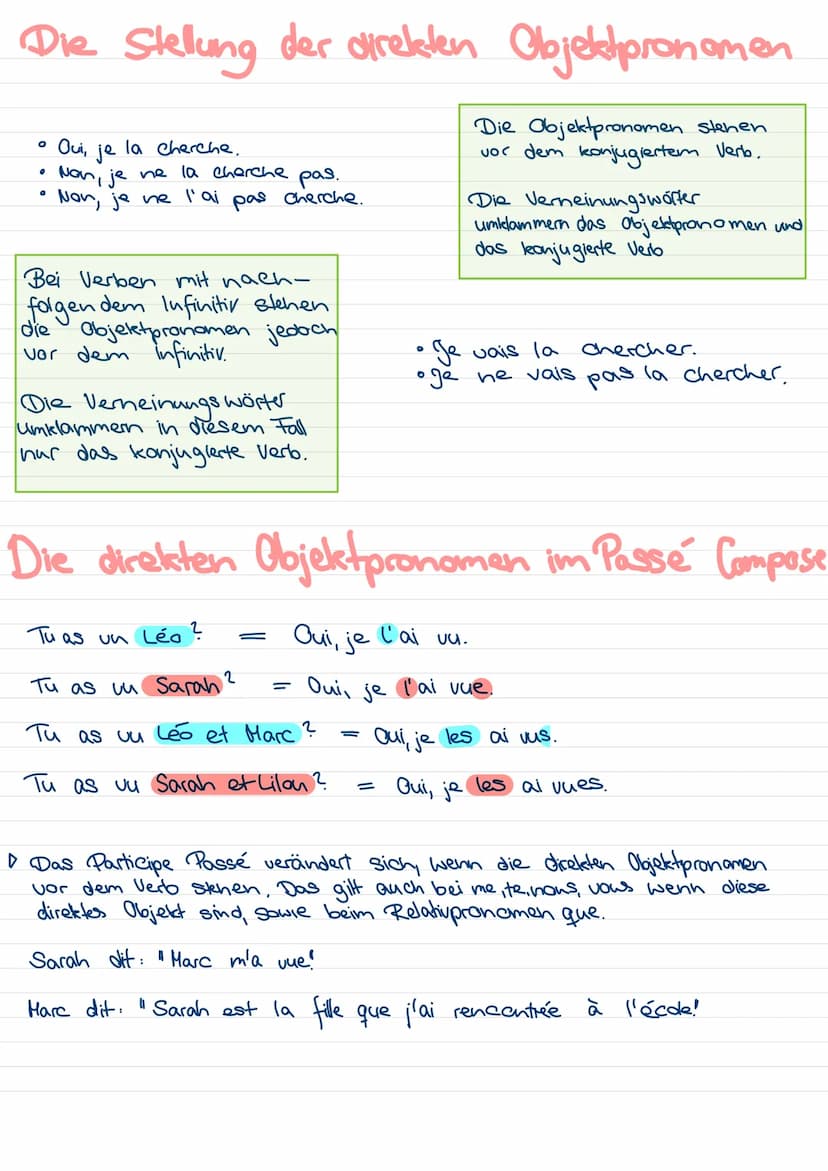 Die Stellung der direkten Objektpronomen
• Oui, je la cherche.
• Non, je ne la cherche pas.
• Non, je ne l'ai pas cherche.
Die Objektpronomen stehen
vor dem konjugiertem Verb.
Die Verneinungswörter
umklammern das Objektpronomen und
das konjugierte Verb
Bei Verben mit nach-
folgendem Infinitiv stehen
die Objektpronomen jedoch
vor dem Infinitiv.
Die Verneinungswörter
umklammern in diesem Fall
nur das konjugierte Verb.
• Je vais la chercher.
• Je ne vais pas la chercher.
Die direkten Objektpronomen im Passé Compose
Tu as vu Léo? = Oui, je l'ai vu.
Tu as vu Sarah? = Oui, je l'ai vue.
Tu as vu Léo et Marc? = Oui, je les ai vus.
Tu as vu Sarah et Lilou? = Oui, je les ai vues.
▷ Das Participe Passé verändert sich, wenn die direkten Objektpronomen
vor dem Verb stehen. Das gilt auch bei me, te, nous, vous wenn diese
direktes Objekt sind, sowie beim Relativpronomen que.
Sarah dit: "Marc m'a vue!
Marc dit: "Sarah est la fille que j'ai rencontrée à l'école!